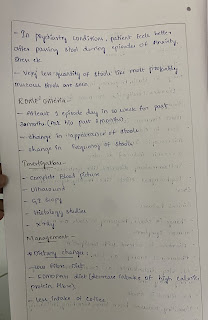 - In psychiatry conditions, patient feels better
after passing stool during episodes of Anxiety,
stress etc
- Very less quantity of stools like most probably
mucous thick are seen.
ROME criteria -
- Atleast 1 episode day in a week for past
3 months
- change in appearance of stools.
- change in frequency of stools.
Investigations -
- Complete Blood picture
- Ultrasound
- GI Scopy
- Histology studies
- X-ray
Management -
* Dietary changes
- Less fibre diet
- FODMAPS diet (decrease intake of high calorie,
protein
- Less intake of coffee